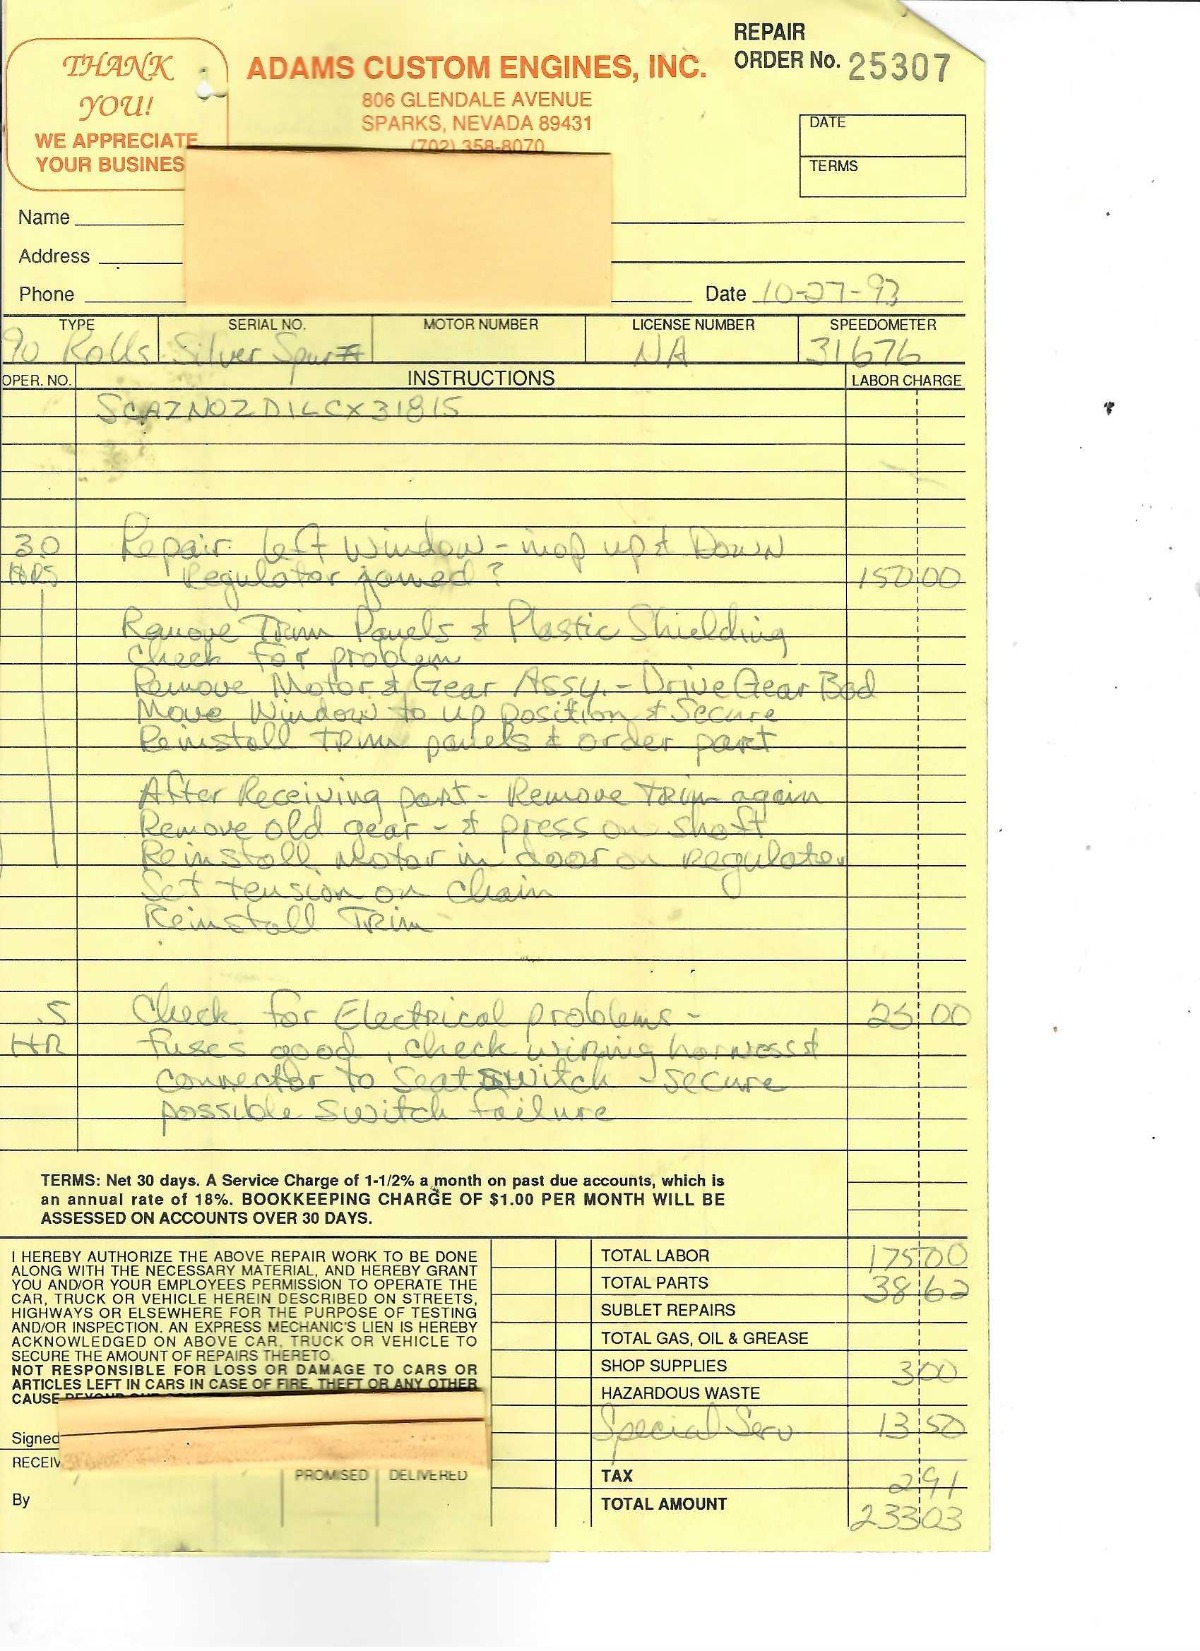 REPAIR
ORDER No. 25307
THANK
YOU!
WE APPRECIATE
YOUR BUSINES
ADAMS CUSTOM ENGINES, INC.
806 GLENDALE AVENUE
SPARKS, NEVADA 89431
(702) 358-8070
DATE
TERMS
Name
Address
Phone
Date 10-27-93
TYPE SERIAL NO. MOTOR NUMBER LICENSE NUMBER SPEEDOMETER
90 Rolls Silver Spur NA 31676
OPER. NO. INSTRUCTIONS LABOR CHARGE
SCAZN02D1LCX31815
3.0 Repair left window - inop up & Down
HRS Regulator jammed? 150 00
Remove Trim Panels & Plastic Shielding
Check for problem
Remove Motor & Gear Assy. - Drive Gear Bad
Move Window to up position & Secure
Reinstall trim panels & order part
After Receiving part - Remove trim again
Remove old gear - & press on shaft
Reinstall Motor in door on regulator
Set tension on Chain
Reinstall Trim
.5 Check for Electrical problems - 25 00
HR Fuses good, check wiring harness &
connector to Seat Switch - Secure
possible switch failure
TERMS: Net 30 days. A Service Charge of 1-1/2% a month on past due accounts, which is
an annual rate of 18%. BOOKKEEPING CHARGE OF $1.00 PER MONTH WILL BE
ASSESSED ON ACCOUNTS OVER 30 DAYS.
I HEREBY AUTHORIZE THE ABOVE REPAIR WORK TO BE DONE
ALONG WITH THE NECESSARY MATERIAL, AND HEREBY GRANT
YOU AND/OR YOUR EMPLOYEES PERMISSION TO OPERATE THE
CAR, TRUCK OR VEHICLE HEREIN DESCRIBED ON STREETS,
HIGHWAYS OR ELSEWHERE FOR THE PURPOSE OF TESTING
AND/OR INSPECTION. AN EXPRESS MECHANIC'S LIEN IS HEREBY
ACKNOWLEDGED ON ABOVE CAR, TRUCK OR VEHICLE TO
SECURE THE AMOUNT OF REPAIRS THERETO.
NOT RESPONSIBLE FOR LOSS OR DAMAGE TO CARS OR
ARTICLES LEFT IN CARS IN CASE OF FIRE, THEFT OR ANY OTHER
CAUSE
Signed
RECEIV
PROMISED DELIVERED
By
TOTAL LABOR 175 00
TOTAL PARTS 38 62
SUBLET REPAIRS
TOTAL GAS, OIL & GREASE
SHOP SUPPLIES 3 00
HAZARDOUS WASTE
Special Serv 13 50
TAX 2 91
TOTAL AMOUNT 233 03